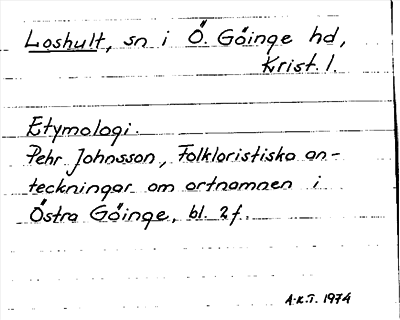 Loshult, sn i Ö. Göinge hd,
Krist. l.
Etymologi.
Pehr Johnsson, Folkloristiska an-
teckningar om ortnamnen i
Östra Göinge, bl. 2f.
A-K.T. 1974